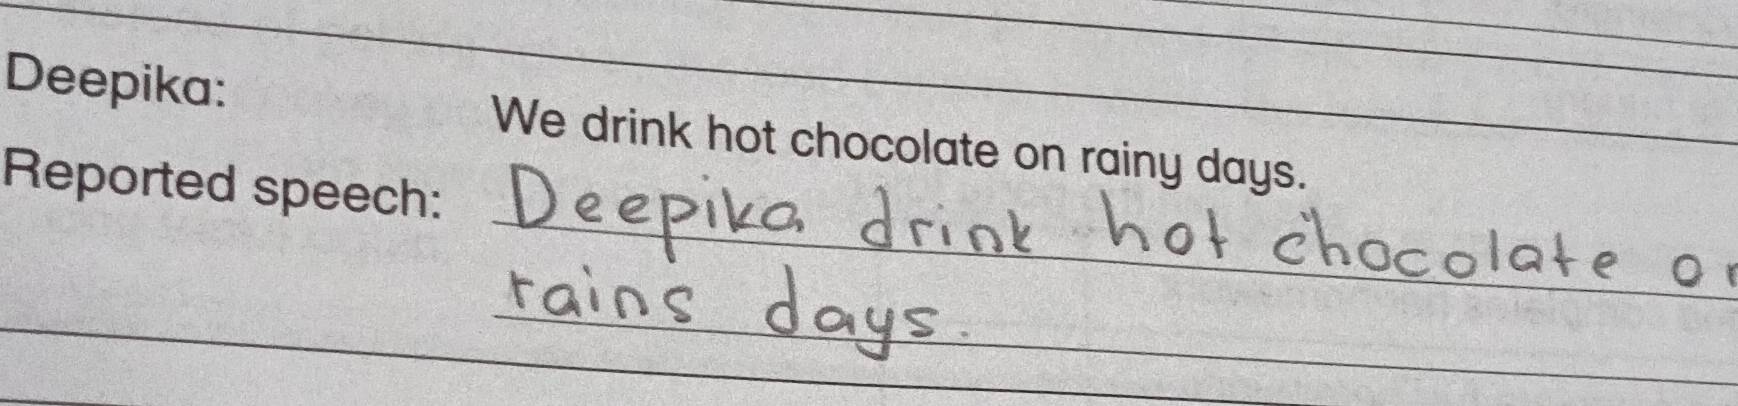 Deepika:
We drink hot chocolate on rainy days.
Reported speech:
Deepika drink hot chocolate
rains days.